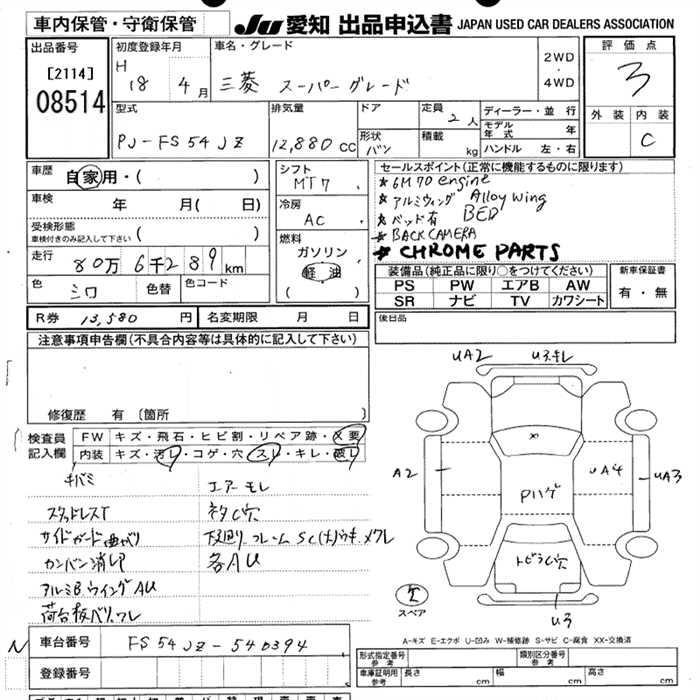 車内保管・守衛保管
JU 愛知 出品申込書 JAPAN USED CAR DEALERS ASSOCIATION
出品番号
[2114]
08514
初度登録年月
H 18 4月
車名・グレード
三菱 スーパーグレード
2WD
・
4WD
評価点
3
外装 内装
C
型式
PJ-FS54JZ
排気量
12,880 CC
ドア
形状
バン
定員
2人
積載
kg
ディーラー・並行
モデル年式 年
ハンドル 左・右
車歴
自家用・( )
車検
年 月( 日)
受検形態
車検付きのみ記入して下さい ( )
走行
80万6千289km
色
シロ
色替
色コード
シフト
MT7
冷房
AC
燃料
ガソリン
軽油
( )
セールスポイント(正常に機能するものに限ります)
★ 6M70 engine
★ アルミウィング Alloy wing
★ ベッド有 BED
★ BACK CAMERA
★ CHROME PARTS
装備品(純正品に限り○をつけてください)
PS PW エアB AW
SR ナビ TV カワシート
新車保証書
有・無
R券 13,580 円
名変期限 月 日
後日品
注意事項申告欄(不具合内容等は具体的に記入して下さい)
修復歴 有 〔箇所
検査員記入欄
FW キズ・飛石・ヒビ割・リペア跡・X要
内装 キズ・汚レ・コゲ・穴・スレ・キレ・破レ
キバミ
エアーモレ
スタッドレスT
ネタC穴
サイドガード曲がり
カンバン消し印
各AU
アルミB.ウイングAU
荷台板ベリ、ワレ
UA2
U3キレ
A2
X
UA4
UA3
Pハゲ
トビラC穴
欠
スペア
U3
A-キズ E-エクボ U-凹み W-補修跡 S-サビ C-腐食 XX-交換済
N
車台番号 FS54JZ-540394
登録番号
形式指定番号
参考
類別区分番号
参考
車庫証明用
参考
長さ cm
幅 cm
高さ cm